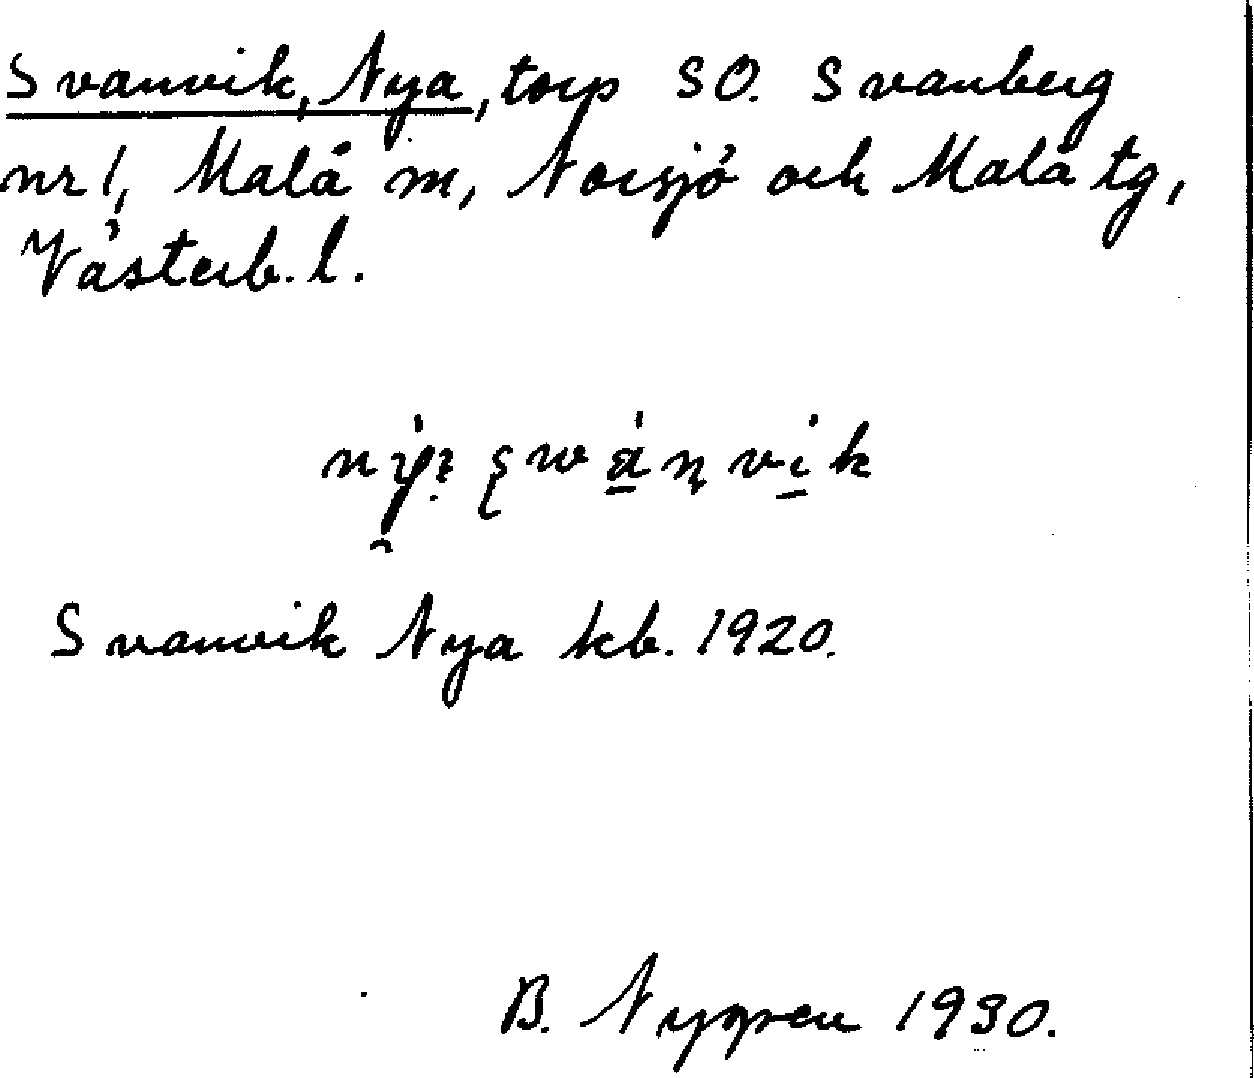 Svanvik, Nya, torp SO. Svanberg
nr 1, Malå m, Norsjö och Malå tg,
Västerb. l.
Svanvik Nya kb. 1920.
B. Nygren 1930.